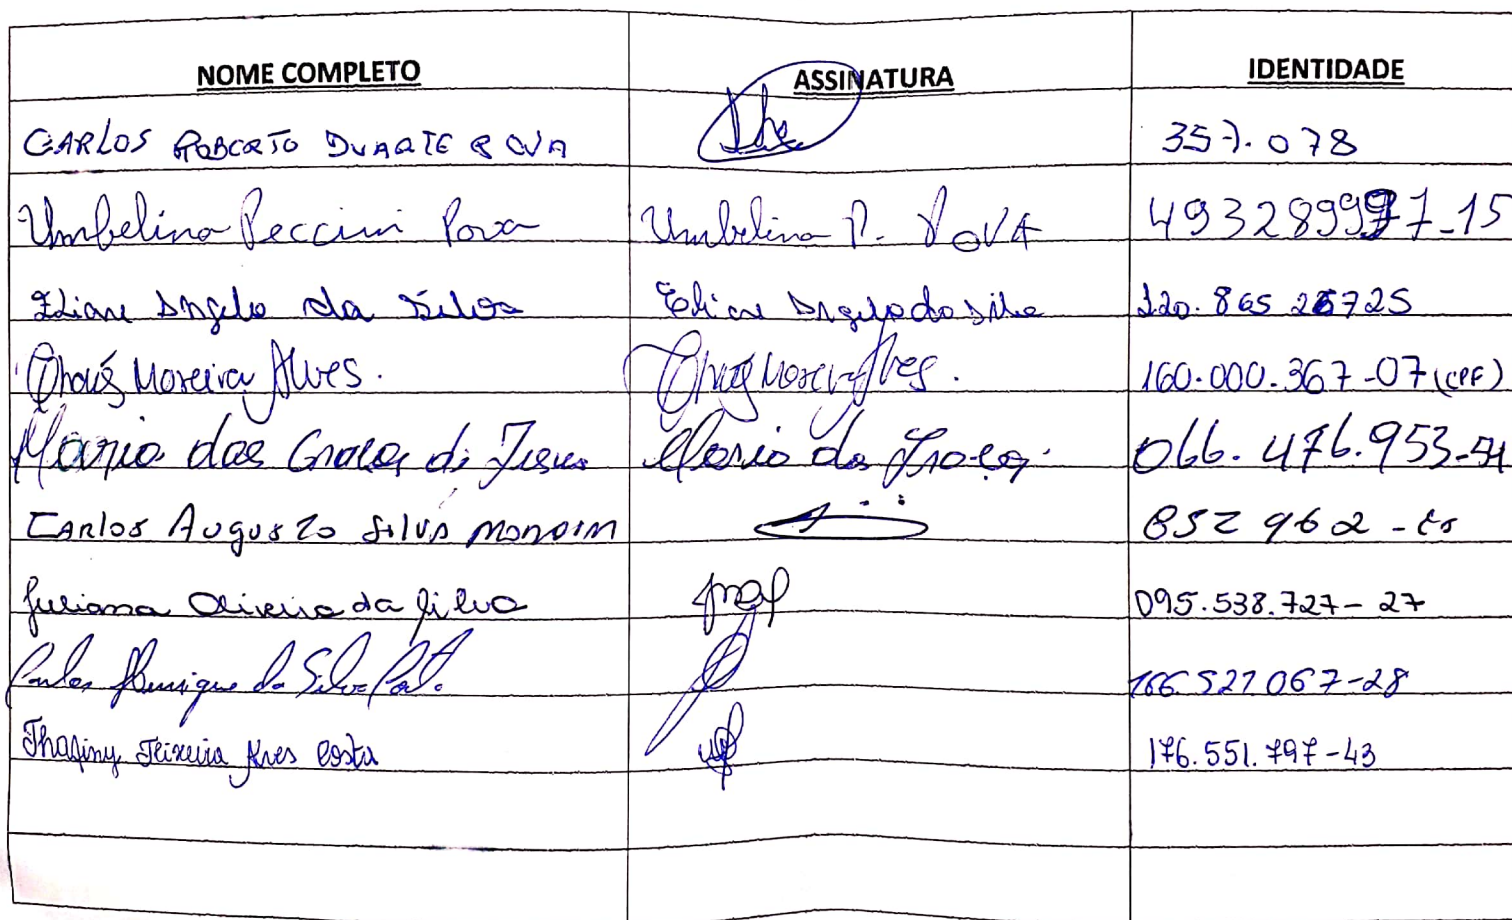 NOME COMPLETO ASSINATURA IDENTIDADE
CARLOS ROBERTO DUARTE 357.078
Umbelina Peccini Pova Umbelina P. POVA 493289997-15
Eliane Angelo da Silva Eliane Angelo da Silva 120.865
Thaís Moreira Alves. Thaís Moreira Alves. 160.000.367-07 (CPF)
Maria das Graças de Jesus Maria da Graças. 066.476.953-54
CARLOS AUGUSTO SILVA 852 962 - ES
Juliana Oliveira da Silva 095.538.727-27
Carlos Henrique da Silva 166.527.067-28
Thafiny Teixeira Alves Costa 176.551.797-43